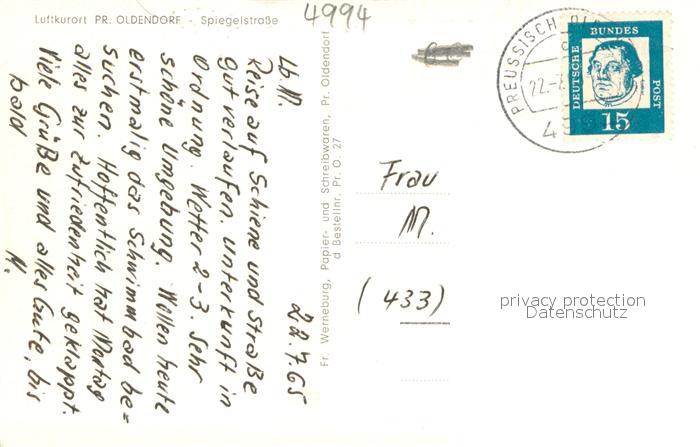 Luftkurort PR. OLDENDORF - Spiegelstraße
4994
22.7.65
Lb M.
Reise auf Schiene und Straße
gut verlaufen. Unterkunft in
Ordnung. Wetter 2-3. Sehr
schöne Umgebung. Wollen heute
erstmalig das Schwimmbad be=
suchen. Hoffentlich hat Montag
alles zur Zufriedenheit geklappt.
Viele Grüße und alles Gute, bis
bald
M.
Fr. Werneburg, Papier- und Schreibwaren, Pr. Oldendorf
d Bestellnr. Pr. O. 27
PREUSSISCH OL
22.-7
DEUTSCHE
BUNDES
POST
15
Frau
M.
(433)
privacy protection
Datenschutz